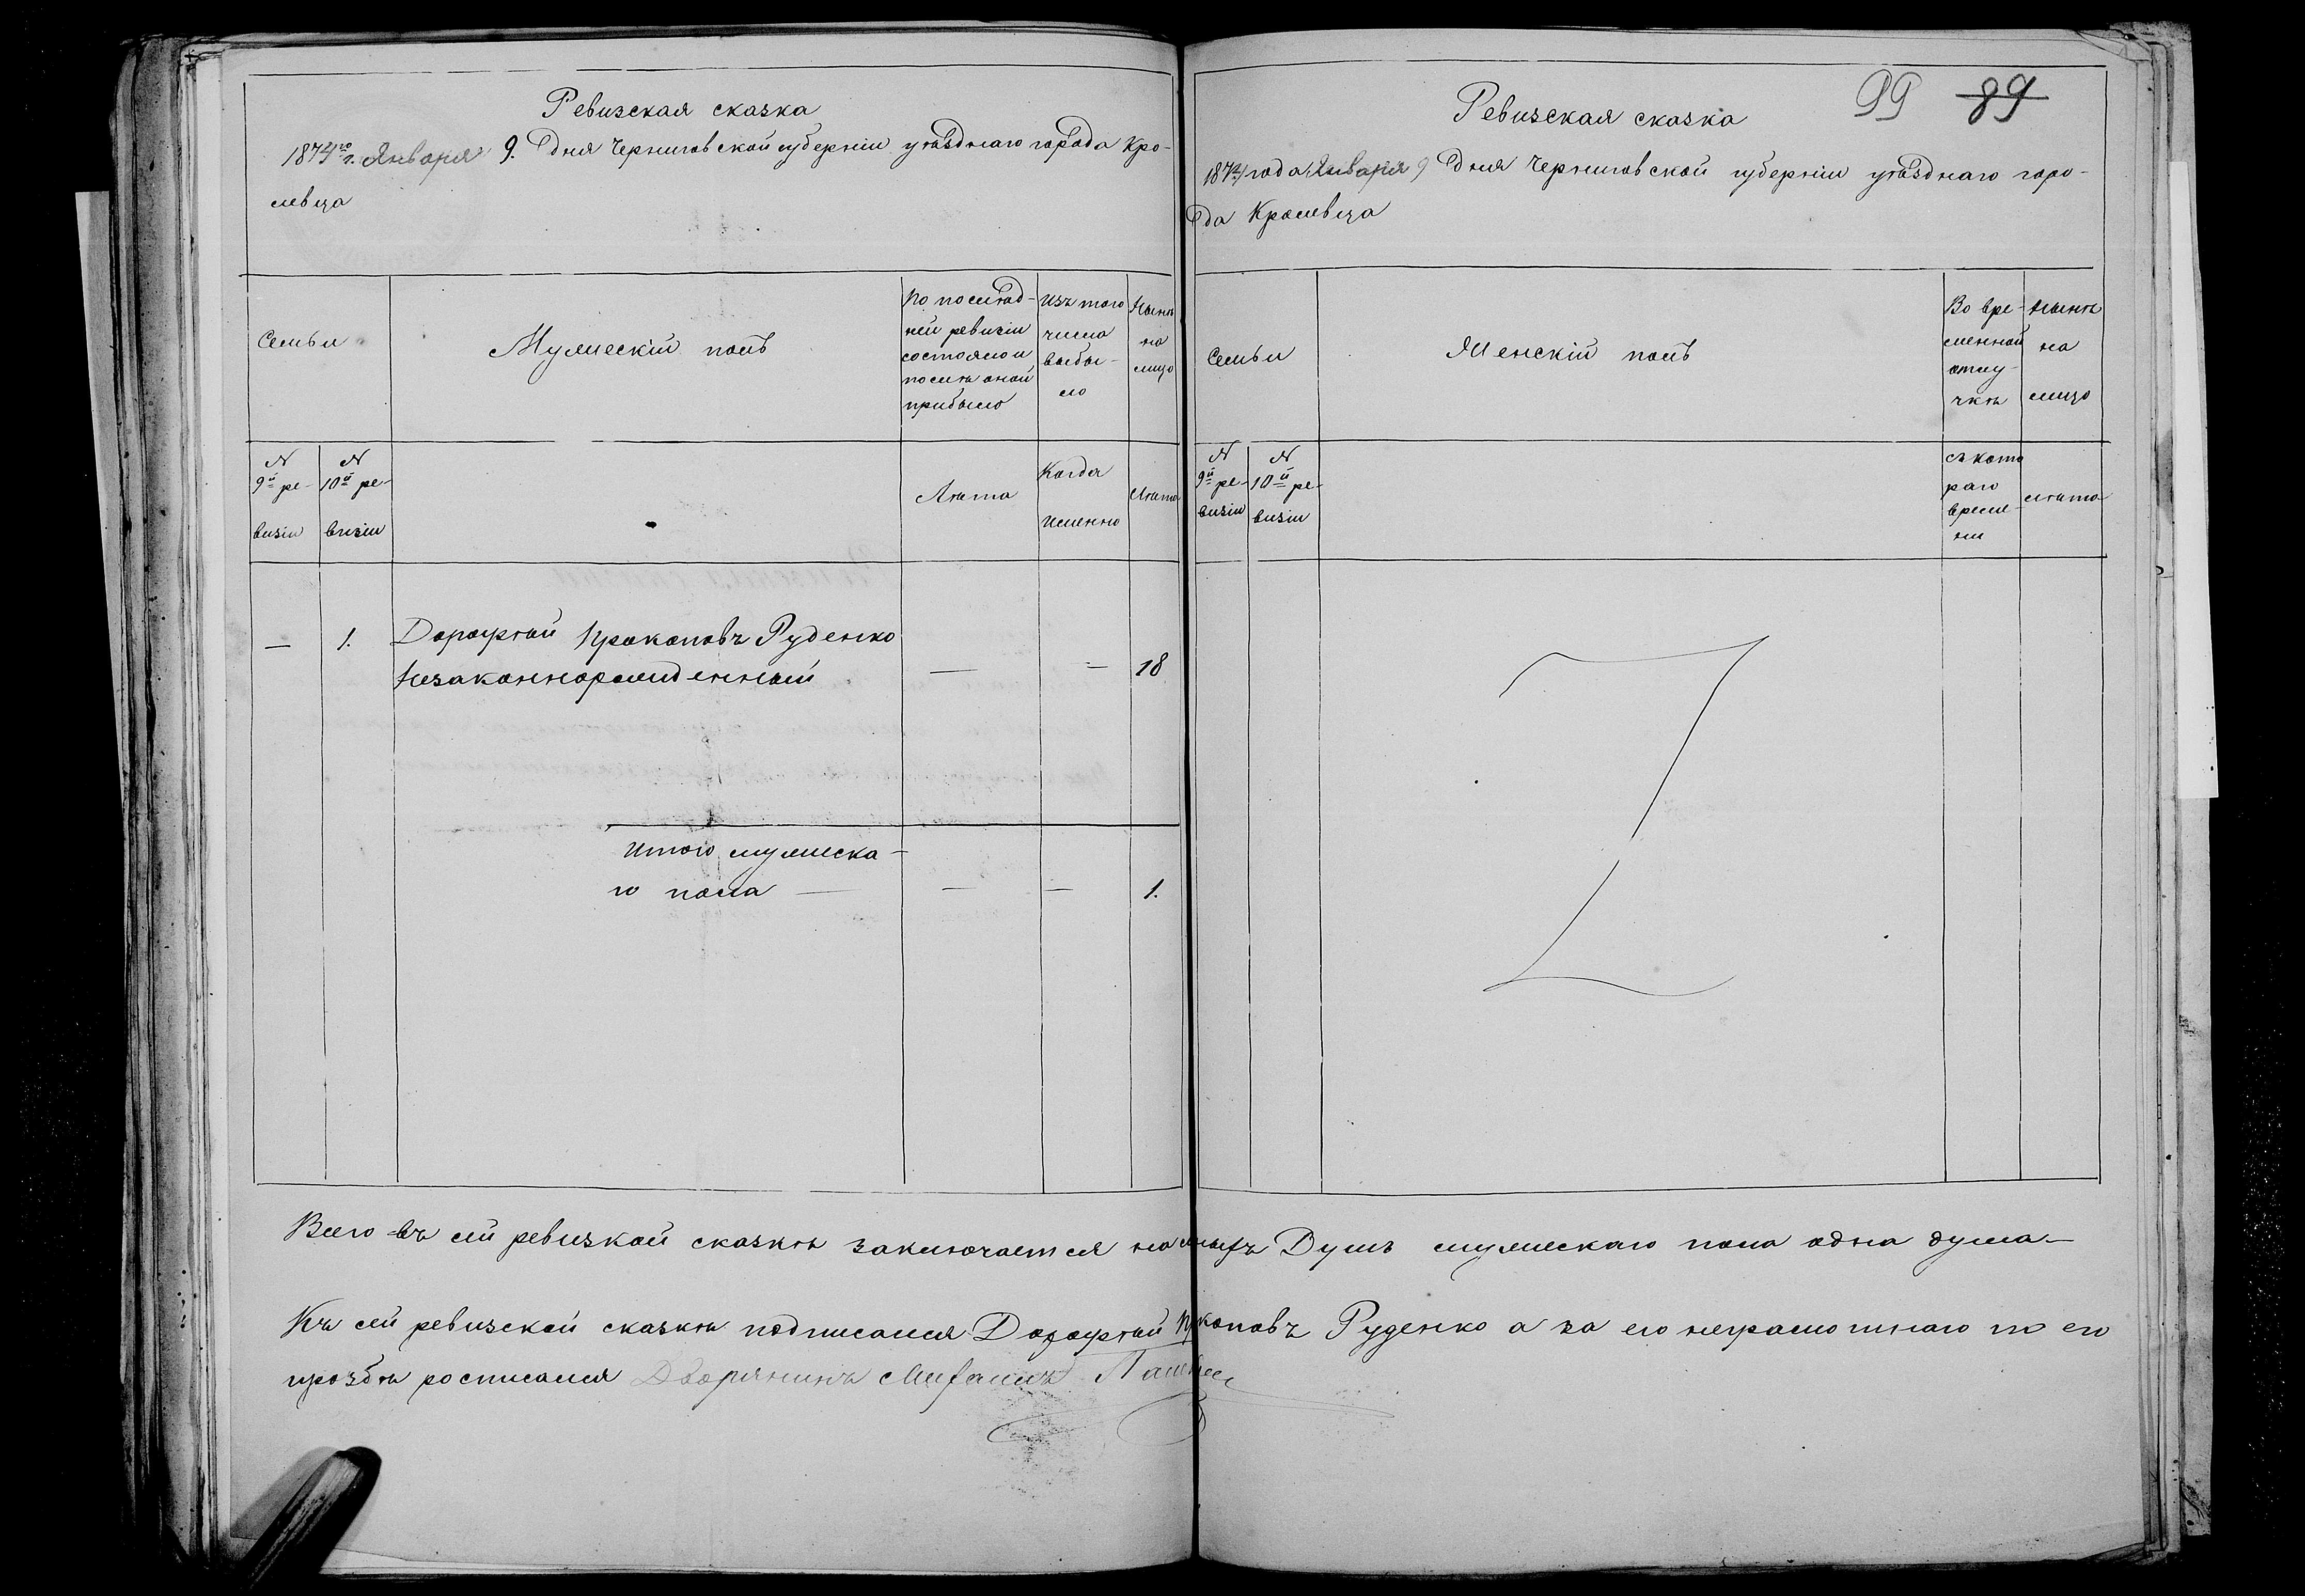 Ревизская сказка
1874го г. Января 9. дня Черниговской губерніи уѣзднаго города Кро-
левца
Семьи
Мужескій полъ
По послѣд-
ней ревизіи
состояло и
послѣ оной
прибыло
Изъ того
числа
выбы-
ло
Нынѣ
на
лицо
N
9й ре-
визіи
N
10й ре-
визіи
Лѣта
Когда
именно
Лѣта
— 1. Дорофѣй Прокоповъ Руденко
Незаконнорожденный — — 18
Итого мужеска-
го пола — — — 1.
99 89
Ревизская сказка
1874 года Января 9 дня Черниговской губерніи уѣзднаго горо-
да Кролевца
Семьи
Женскій полъ
Во вре-
менной
отлу-
чкѣ
Нынѣ
на
лицо
N
9й ре-
визіи
N
10й ре-
визіи
съ кото
раго
време-
ни
лѣта
Всего въ сей ревизкой сказкѣ заключается наличныхъ Душъ мужескаго пола одна душа—
Къ сей ревизской сказкѣ подписался Дорофѣй Прокоповъ Руденко а за его неграмотнаго по его
прозбѣ росписался Дворянинъ Михаилъ